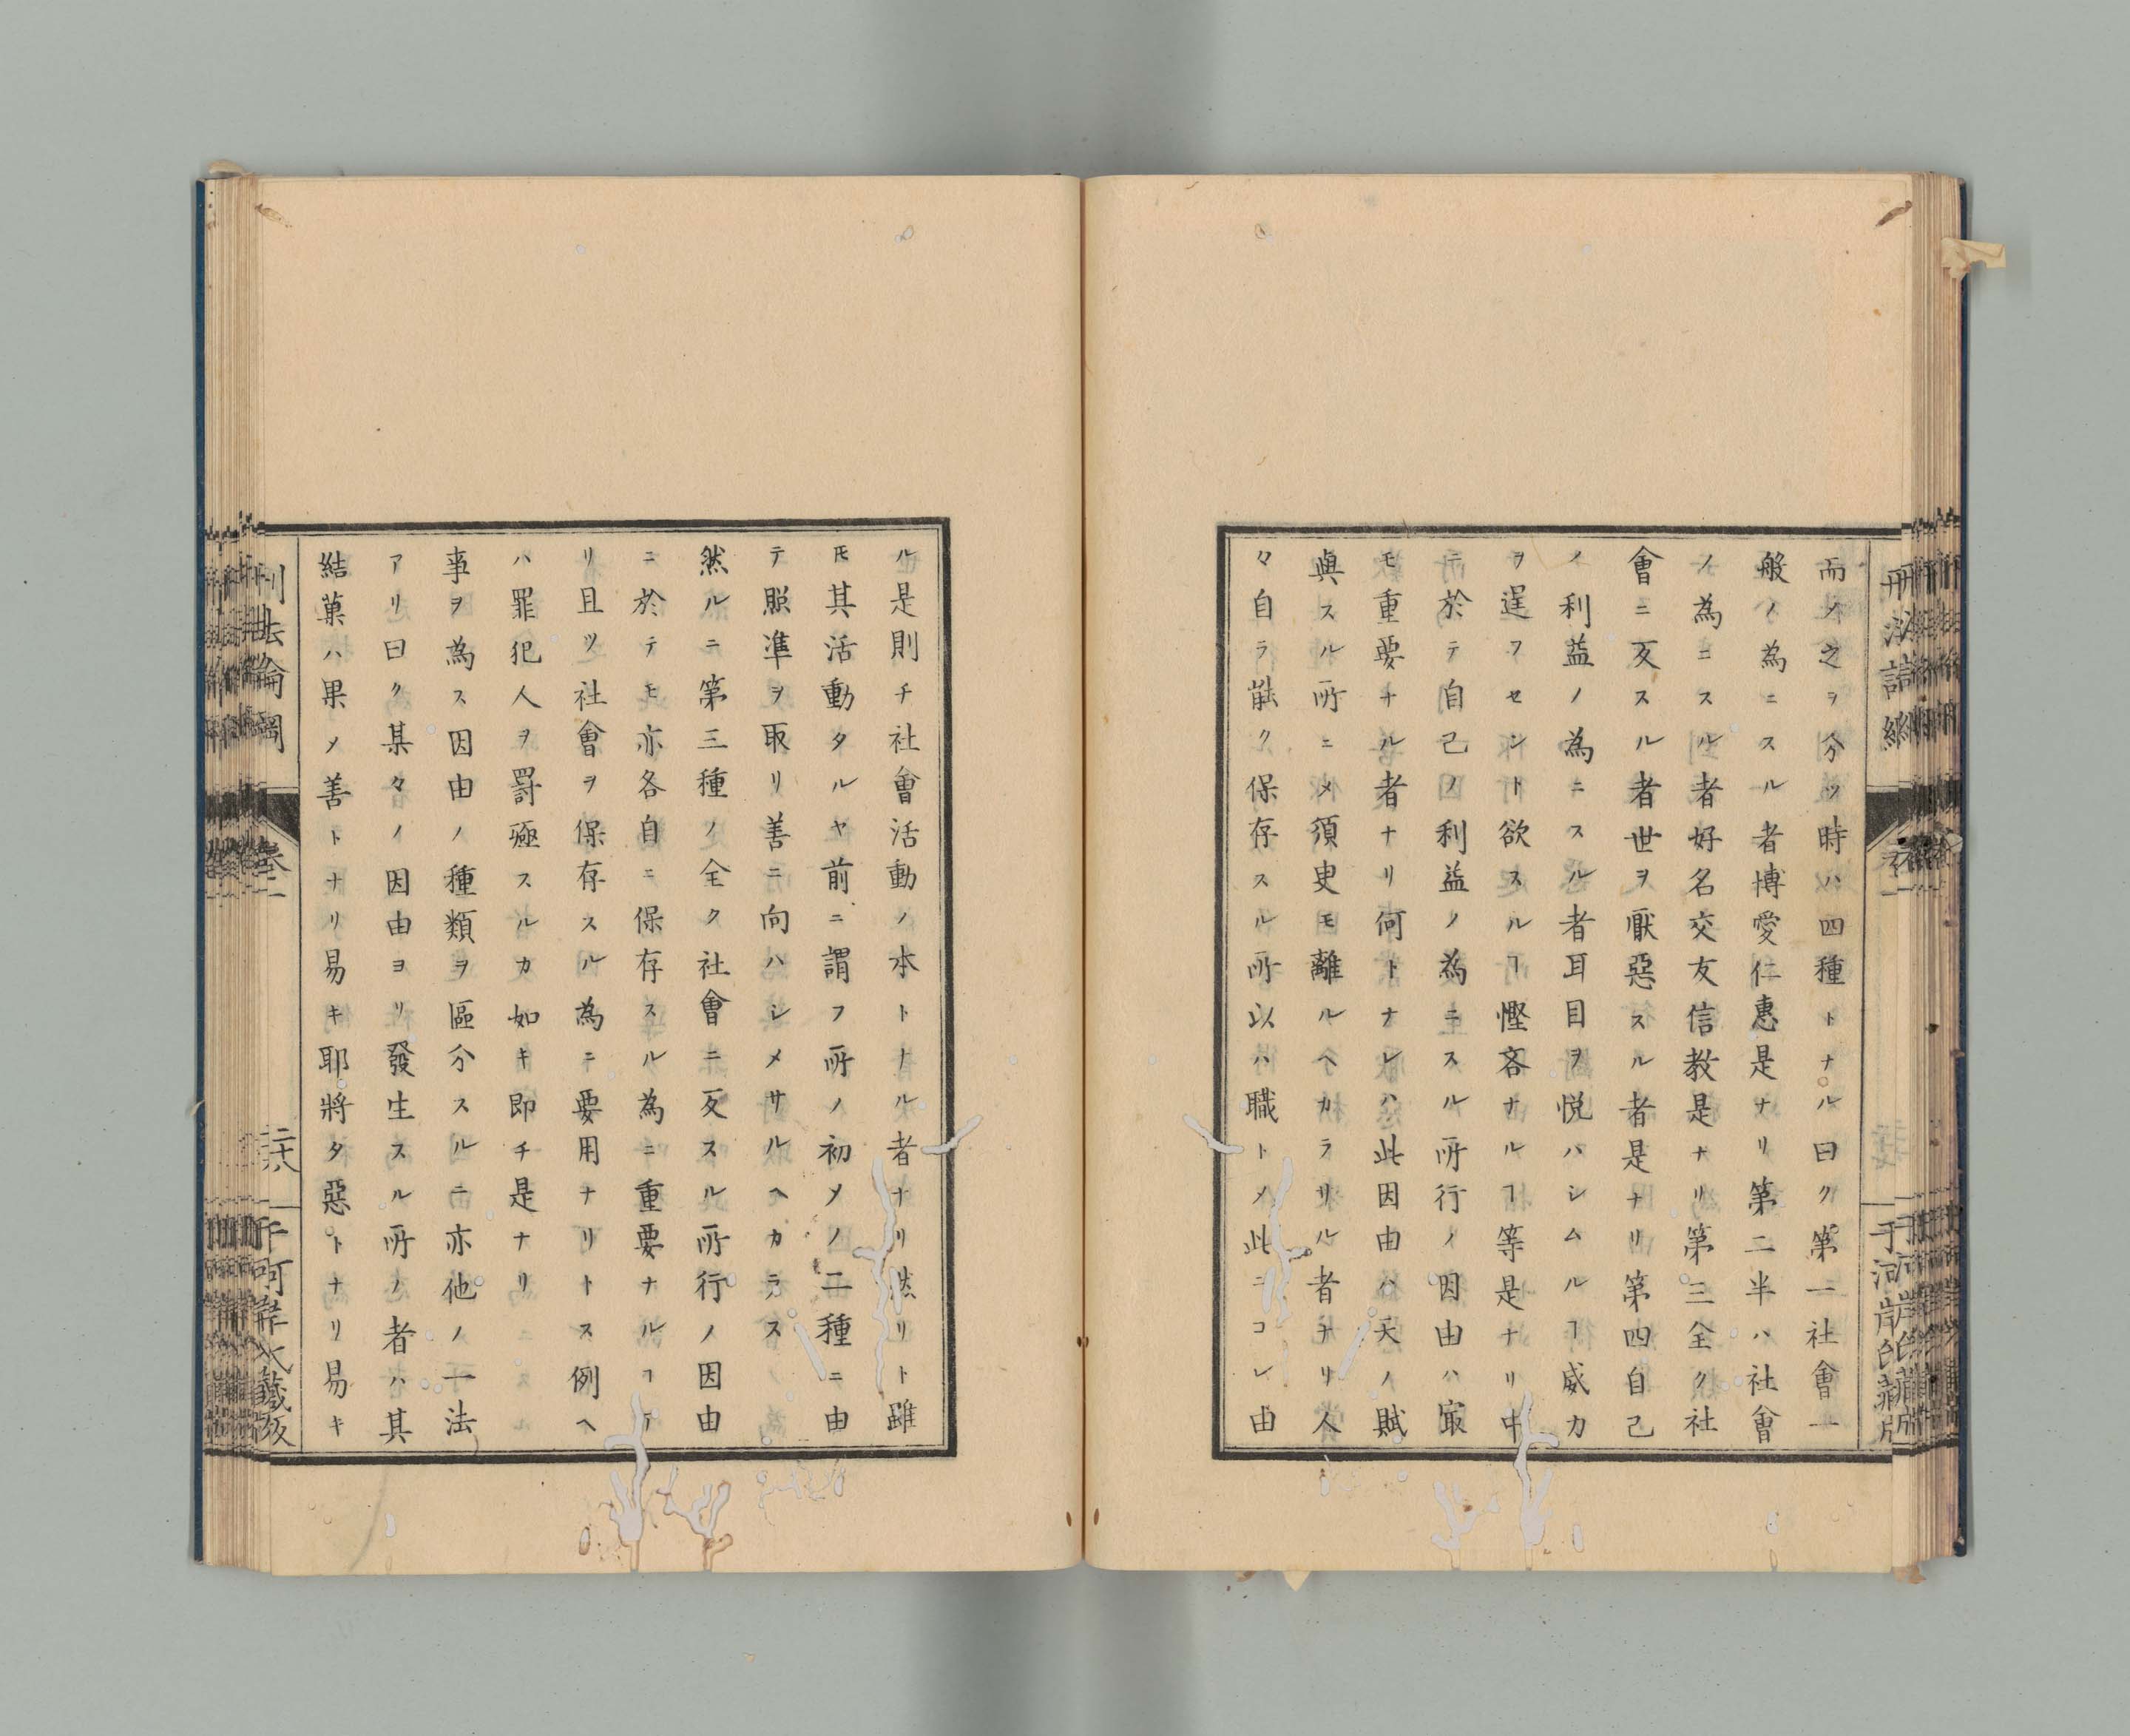 而メ之ヲ分ツ時ハ四種トナル曰ク第一社會一
般ノ為ニスル者博愛仁惠是ナリ第二半ハ社會
ノ為ニスル者好名交友信教是ナリ第三全ク社
會ニ反スル者世ヲ厭惡スル者是ナリ第四自己
ノ利益ノ為ニスル者耳目ヲ悦ハシムルヿ威力
ヲ逞フセント欲スルヿ慳吝ナルヿ等是ナリ中
ニ於テ自己ノ利益ノ為ニスル所行ノ因由ハ冣
モ重要ナル者ナリ何トナレハ此因由ハ天ノ賦
與スル所ニメ須臾モ離ルヘカラサル者ナリ人
々自ラ能ク保存スル所以ハ職トメ此ニコレ由
ル是則チ社會活動ノ本トナル者ナリ然リト雖
𪜈其活動タルヤ前ニ謂フ所ノ初メノ二種ニ由
テ照準ヲ取リ善ニ向ハシメサルヘカラス
然ルニ第三種ノ全ク社會ニ反スル所行ノ因由
ニ於テモ亦各自ニ保存スル為ニ重要ナルヿア
リ且ツ社會ヲ保存スル為ニ要用ナリトス例ヘ
ハ罪犯人ヲ罸殛スルカ如キ即チ是ナリ
事ヲ為ス因由ノ種類ヲ區分スルニ亦他ノ一法
アリ曰ク某々ノ因由ヨリ發生スル所ノ者ハ其
結菓ハ果メ善トナリ易キ耶將タ惡トナリ易キ
刑法論綱
卷一
二十八
河岸氏藏版